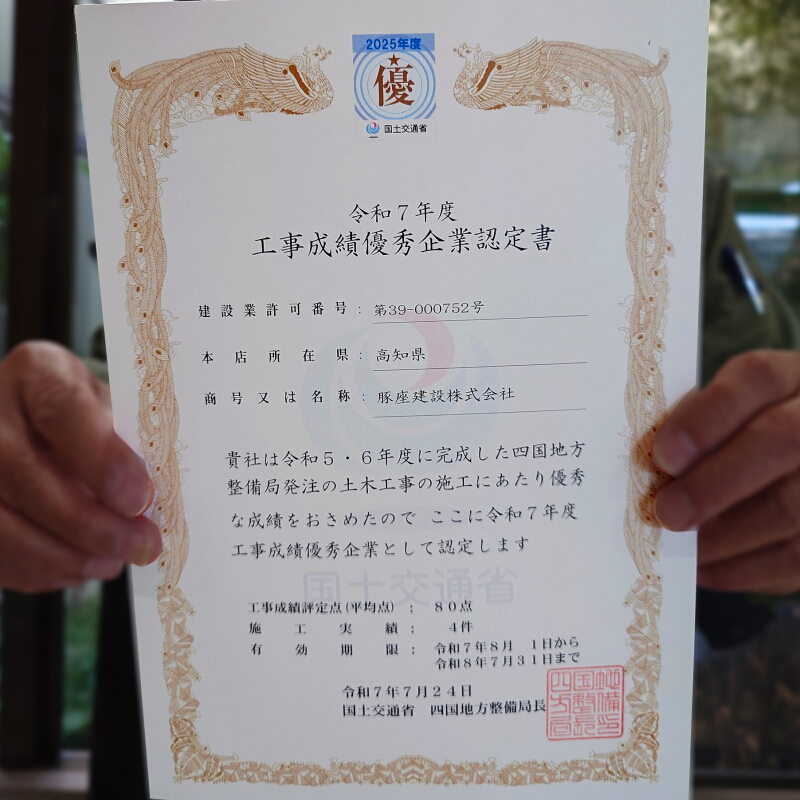 2025年度
優
国土交通省
令和7年度
工事成績優秀企業認定書
建設業許可番号：第39-000752号
本店所在県：高知県
商号又は名称：豚座建設株式会社
貴社は令和5・6年度に完成した四国地方
整備局発注の土木工事の施工にあたり優秀
な成績をおさめたので ここに令和7年度
工事成績優秀企業として認定します
国土交通省
工事成績評定点(平均点)：80点
施工実績：4件
有効期限：令和7年8月 1日から
令和8年7月31日まで
令和7年7月24日
国土交通省 四国地方整備局長